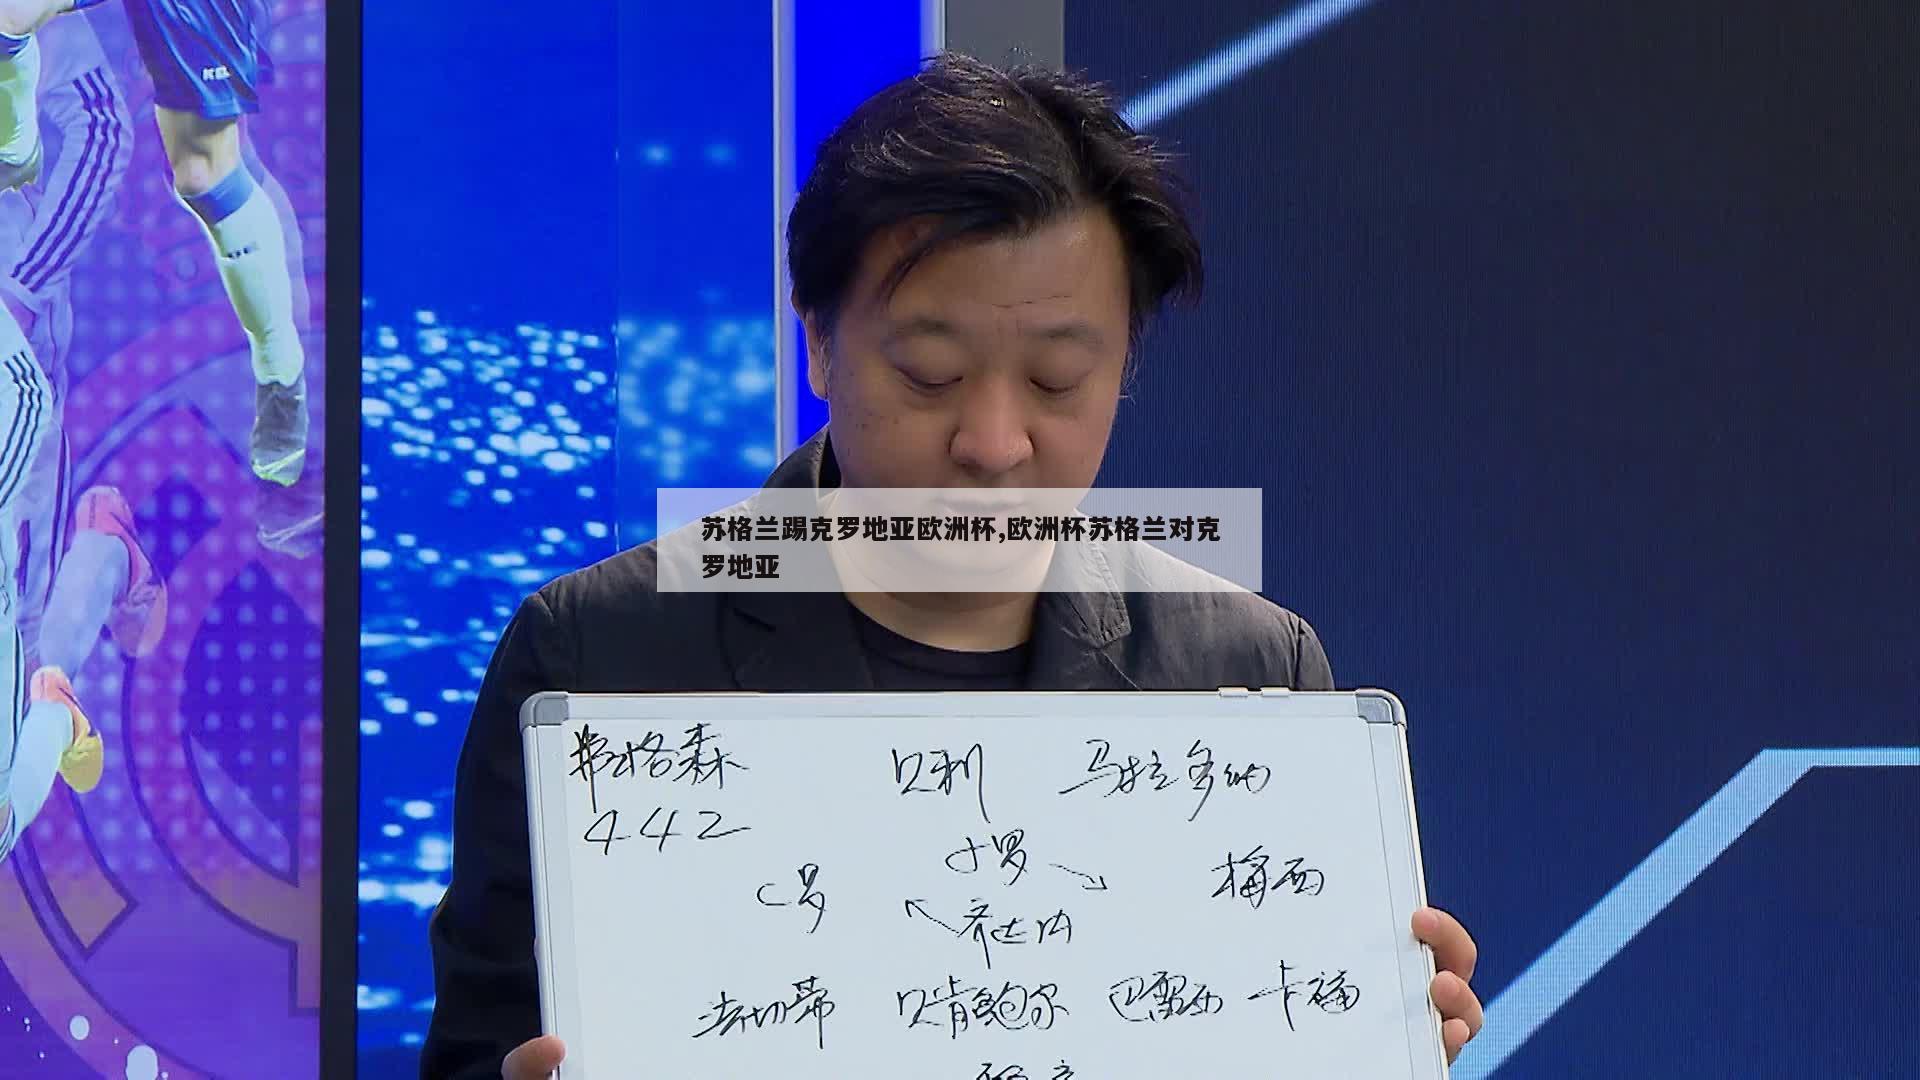 苏格兰踢克罗地亚欧洲杯,欧洲杯苏格兰对克
罗地亚
弗格森 贝利 马拉多纳
442
小罗
C罗 梅西
齐达内
法切蒂 贝肯鲍尔 巴雷西 卡福